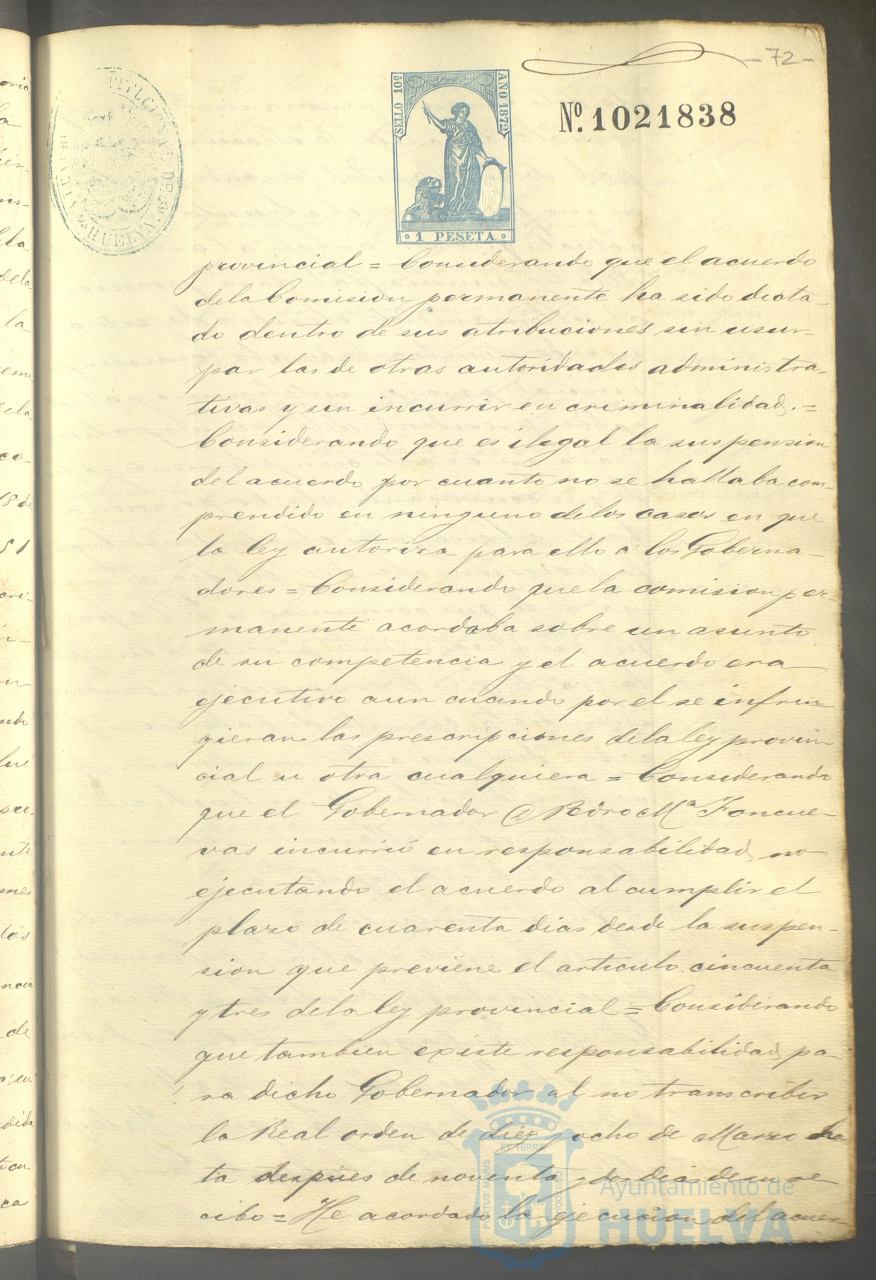 -72-
SELLO 10º
AÑO 1872
Nº 1021838
1 PESETA
HUELVA
provincial = Considerando que el acuerdo
de la Comision permanente ha sido dicta-
do dentro de sus atribuciones sin usur-
par las de otras autoridades administra-
tivas y sin incurrir en criminalidad. =
Considerando que es ilegal la suspension
del acuerdo por cuanto no se hallaba com-
prendido en ninguno de los casos en que
la ley autoriza para ello á los Goberna-
dores = Considerando que la comision per-
manente acordaba sobre un asunto
de su competencia y el acuerdo era
ejecutivo aun cuando por el se infrin
gieran las prescripciones de la ley provin
cial u otra cualquiera = Considerando
que el Gobernador D Pedro Mª Foncue-
vas incurrió en responsabilidad no
ejecutando el acuerdo al cumplir el
plazo de cuarenta dias desde la suspen-
sion que previene el articulo cincuenta
y tres de la ley provincial = Considerando
que tambien existe responsabilidad pa-
ra dicho Gobernador al no transcribir
la Real orden de diez y ocho de Marzo has
ta despues de noventa y dos dias de su re
cibo = He acordado la ejecucion del acuer
Ayuntamiento de
HUELVA